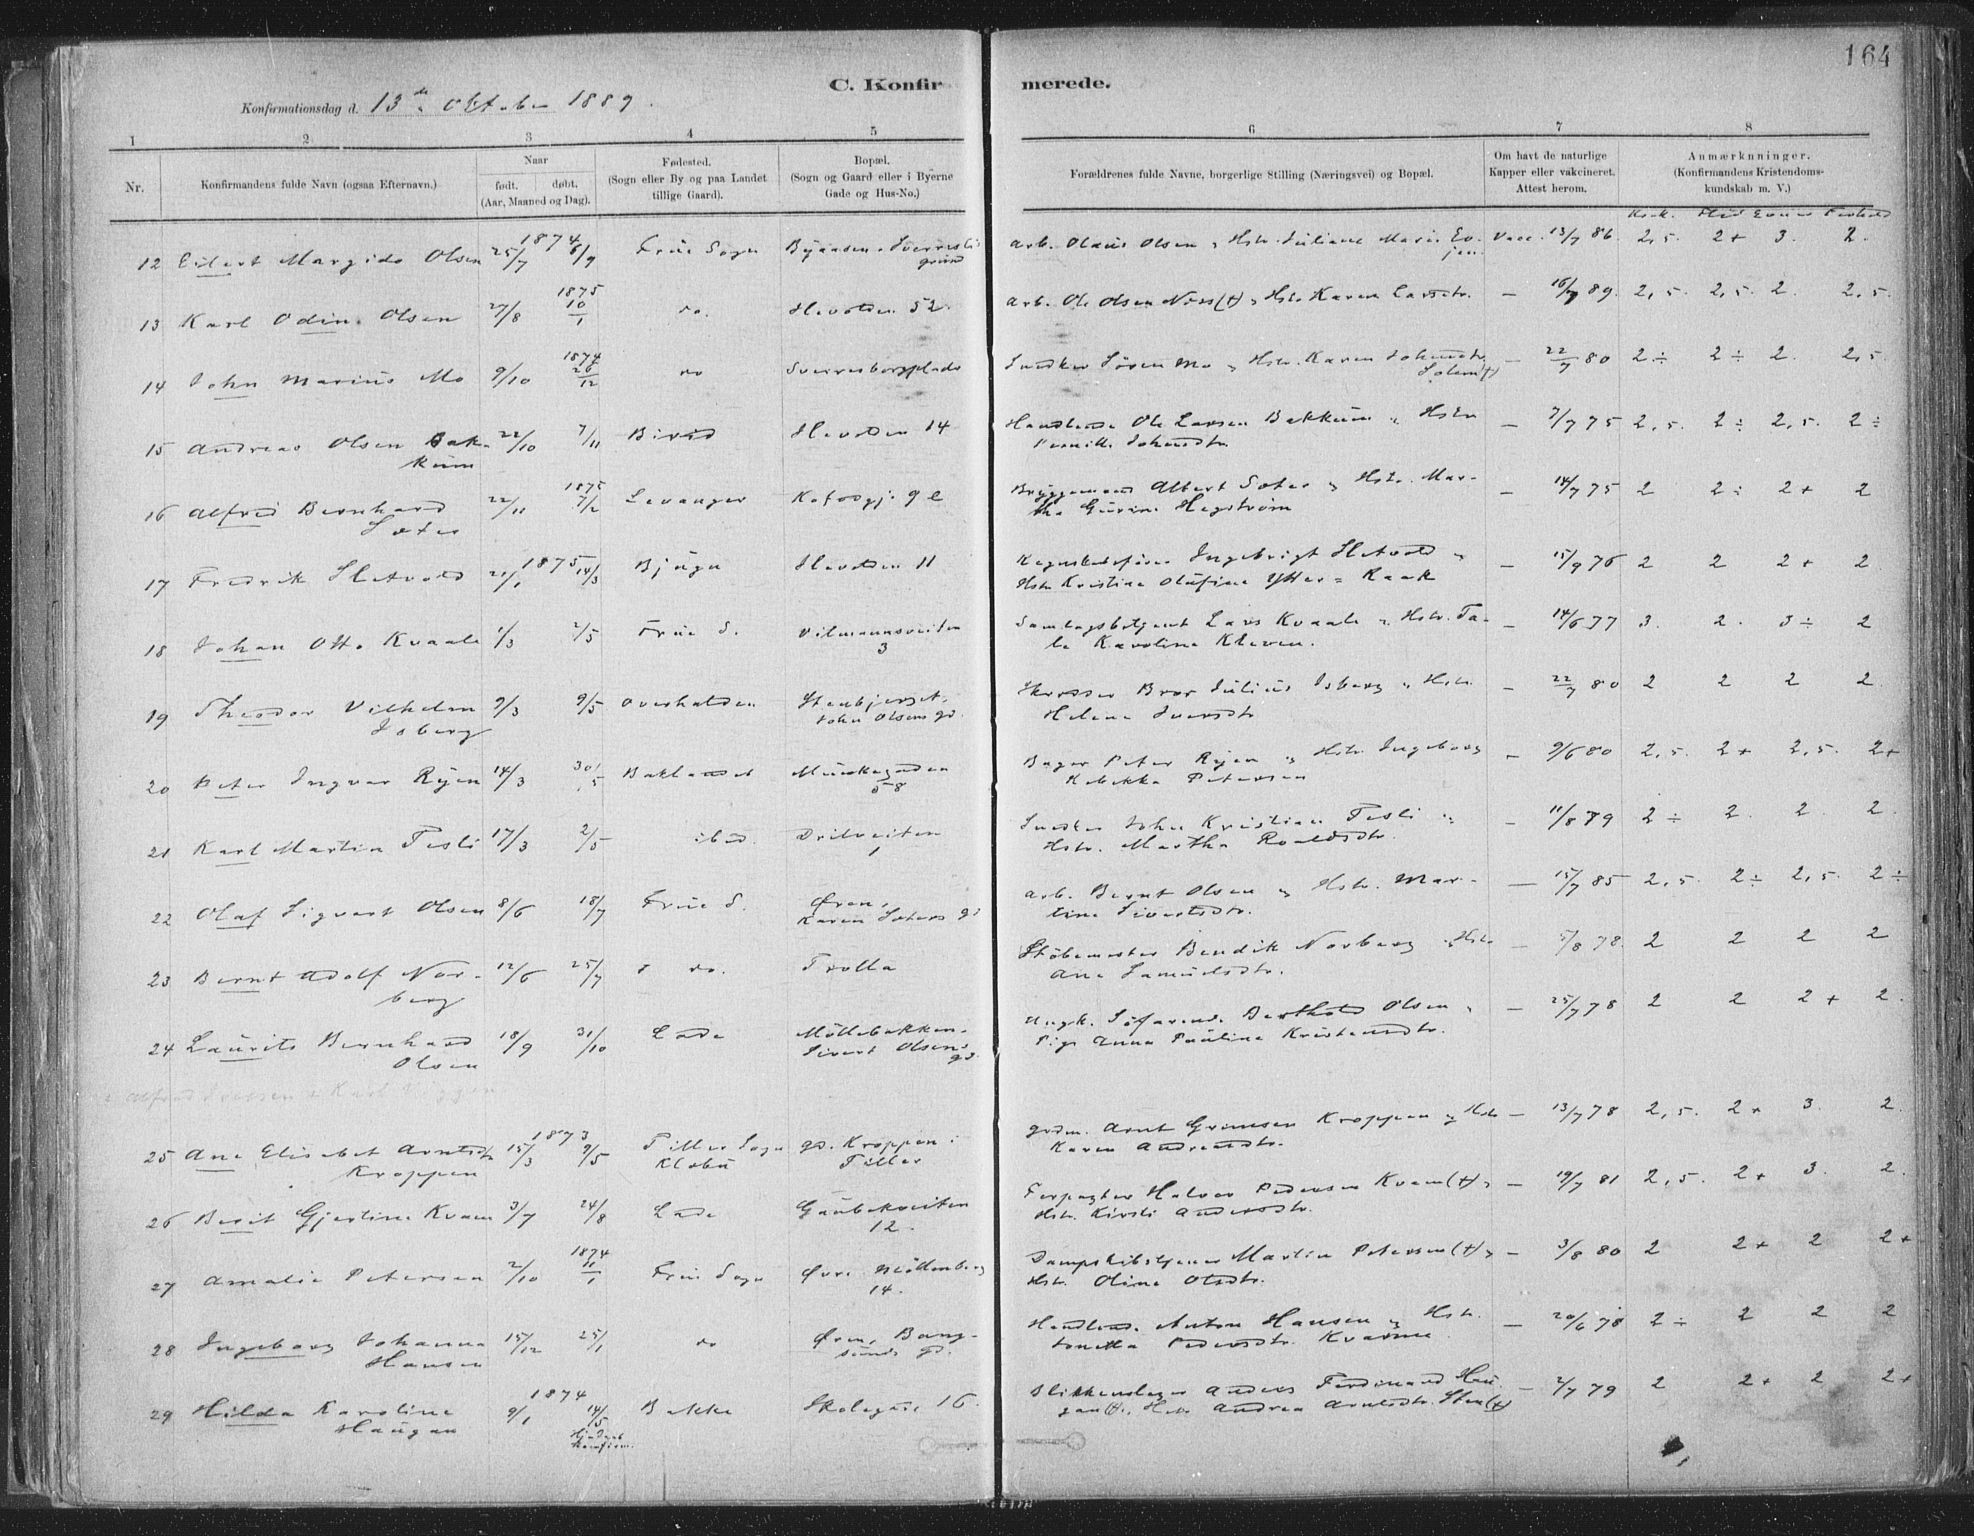 164
C. Konfirmerede.
Konfirmationsdag d. 13de Oktober 1889.
1 2 3 4 5 6 7 8
Nr.
Konfirmandens fulde Navn (ogsaa Efternavn.)
Naar
født. døbt.
(Aar, Maaned og Dag).
Fødested.
(Sogn eller By og paa Landet
tillige Gaard).
Bopæl.
(Sogn og Gaard eller i Byerne
Gade og Hus-No.)
Forældrenes fulde Navne, borgerlige Stilling (Næringsvei) og Bopæl.
Om havt de naturlige
Kapper eller vakcineret.
Attest herom.
Anmærknninger.
(Konfirmandens Kristendoms-
kundskab m. V.)
12 Eilert Margido Olsen 1874 25/7 8/9 Frue Sogn Byaasen, Arb. Olaus Olsen, Hstr. Juliane Marie Vacc. 13/7 86. 2,5. 2+ 3. 2.
13 Karl Odin Olsen 27/8 1875 10/1 do. Hevolden 52. Arb. Ole Olsen Næss(†), Hstr. Karen Larsdtr. — 16/7 89. 2,5. 2,5. 2. 2,5.
14 John Marius Mo 9/10 1874 26/12 do Sverresborgplads Snedker Søren Mo, Hstr. Karen Johnsdtr. Solem(†) — 22/7 80 2÷ 2÷ 2. 2,5
15 Andreas Olsen Bak- 22/10 7/11 Hevolden 14 Handlende Ole Larsen Bakkum, — 7/7 75 2,5. 2÷ 2,5. 2÷
kum Pernille Johnsdtr.
16 Alfred Bernhard 22/11 1875 7/2 Levanger 9 e Bryggemand Albert Sæter, Hstr. Mar- — 14/7 75 2 2÷ 2+ 2
Sæter tha Gurine Hegstrøm
17 Fredrik Sletvold 21/1 1875 14/3 Bjugn Hevolden 11 Regnskabsfører Ingebrigt Sletvold, — 15/9 76 2 2 2+ 2
Hstr. Kristine Olufine Ytter=Raak
18 Johan Otto Kvaale 1/3 2/5 Frue S. Vilmannsveiten Lars Kvaale, Hstr. Ta- — 14/6 77 3. 2. 3÷ 2
3 le Karoline Kleven.
19 Theodor Vilhelm 9/3 9/5 Overhalden Stenbjerget, Bror Julius Isberg, Hstr. — 22/7 80 2 2 2 2
Isberg John Olsens gd. Helene Iversdtr.
20 Peter Ingvar Ryen 14/3 30/5 Baklandet Munkegaden Bager Peter Ryen, Hstr. Ingeborg — 9/6 80 2,5. 2+ 2,5. 2+
58 Rebekka Petersen
21 Karl Martin Tesli 17/3 2/5 ibid. Dritveiten Snedker John Kristian Tesli, — 11/8 79 2÷ 2. 2. 2.
1 Hstr. Martha Roaldsdtr.
22 Olaf Sigvart Olsen 8/6 18/7 Frue S. Øren, Arb. Bernt Olsen, Hstr. Mar- — 15/7 85 2,5. 2÷ 2,5. 2÷
Karen Sæters gd tine Sivertsdtr.
23 Bernt Adolf Nor- 12/6 25/7 do. Trolla Støbemester Bendik Norberg, Hstr. — 5/8 78. 2 2 2 2
berg Ane Samuelsdtr.
24 Laurits Bernhard 18/9 31/10 Lade Møllebakken. Ungk. Søfarende Berthold Olsen, — 25/7 78 2 2 2+ 2.
Olsen Sivert Olsens gd. Pige Anna Pauline Kristensdtr.
25 Ane Elisabet Arntsdtr 1873 15/3 9/5 Tiller Sogn gd. Kroppen i Grdm. Arnt Grimsen Kroppen, Hstr. — 13/7 78 2,5. 2+ 3. 2.
Kroppen Klæbu Tiller Karen Andreasdtr.
26 Berit Gjertine Kvam 3/7 24/8 Lade Gaubekveiten Halvor Pedersen Kvam(†), — 19/7 81 2,5. 2+ 3. 2.
12. Hstr. Kirsti Andersdtr.
27 Amalie Petersen 2/10 1874 11/1 Frue Sogn Øvre Møllenberg Martin Petersen(†), — 3/8 80 2 2+ 2 2+
14. Hstr. Oline Olsdtr.
28 Ingeborg Johanna 15/12 25/1 do Øren, Bang- Handlende Anton Hansen, Hstr. — 20/6 78 2÷ 2 2 2
Hansen sunds gd. Jonetta Pedersdtr. Kvarme
29 Hilda Karoline 1874 9/1 14/5 Bakke Skolegad. 16. Blikkenslager Anders Ferdinand Hau- — 2/7 79 2 2+ 2 2+
Haugan Hjemme konfirm. gan(†), Hstr. Andrea Arntsdtr. Sten(†)